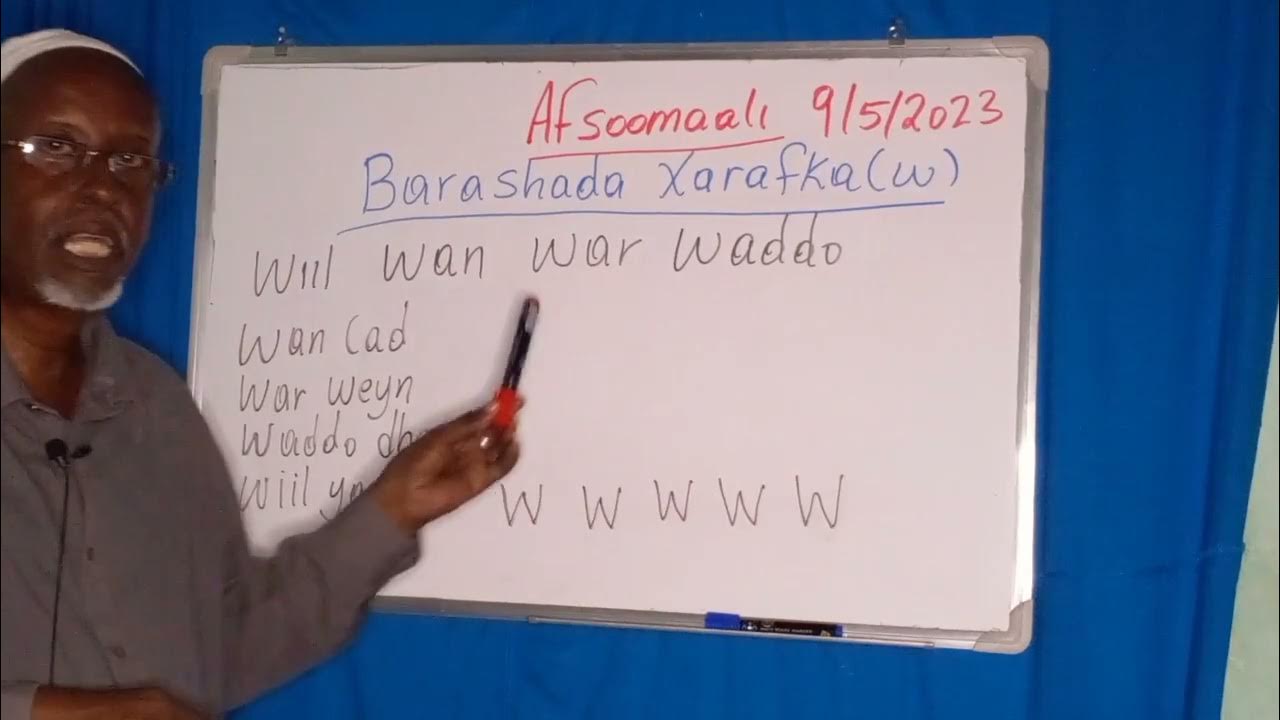 Afsoomaali 9/5/2023
Barashada Xarafka (w)
Wiil Wan War Waddo
Wan Cad
War weyn
Waddo
Wiil
W W W W W